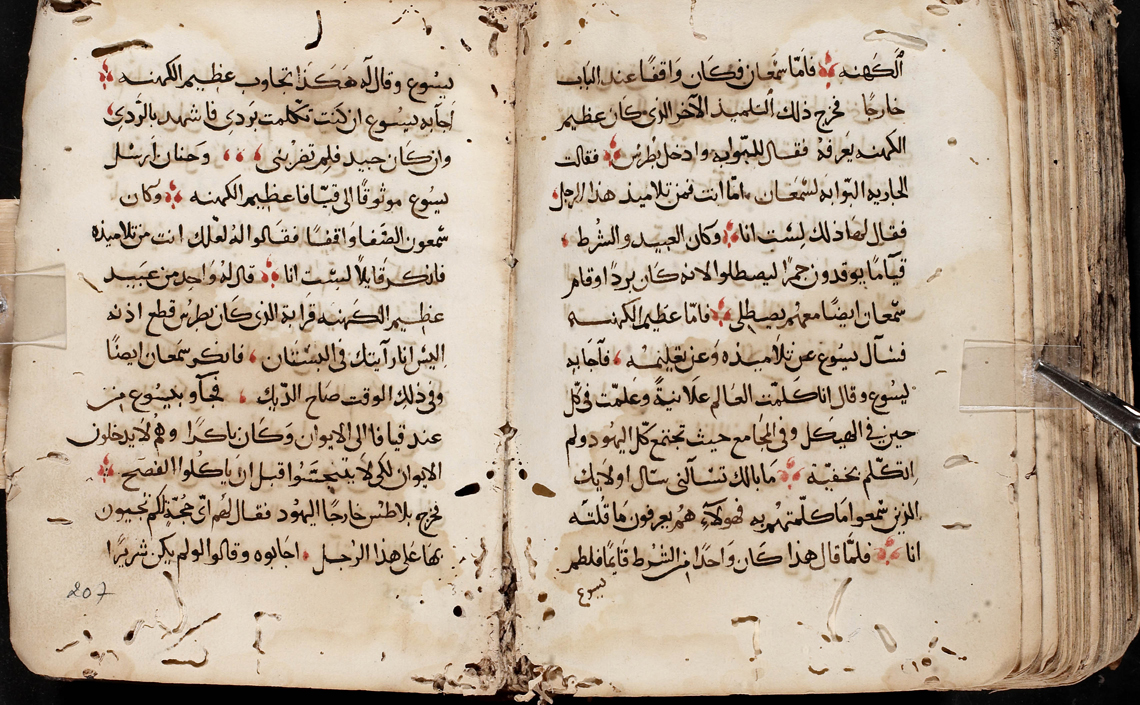 الكهنه فامّا سمعان وكان واقفًا عند الباب
خارجًا فخرج ذلك التلميذ الآخر الذى كان عظيم
الكهنه يعرفهُ فقال للبوابه وادخل بطرس فقالت
الجاريه البّوابه لسمعان امّا انت فمن تلاميذ هذا الرجل
فقال لها ذلك لست انا وكان العبيد والشرط
قيامًا يوقدون جمرًا ليصطلوا لانه كان بردًا وقام
سمعان ايضًا معهم يصطلى فامّا عظيم الكهنه
فسأل يسوع عن تلاميذه وعن تعليمه فأجابه
ليسوع وقال انا كلمّت العالم علانيةً وعلّمت فى كل
حين فى الهيكل وفى المجامع حيث تجتمع كل اليهود ولم
اتكلم بخفيّة ما بالك تسألنى سال اولايك
الذين سمعوا ما كلّمتهم به فهولاء هم يعرفون ما قلته
انا فلمّا قال هذا كان واحدًا من الشرط قايمًا فلطم
يسوع
يسُوع وقال له هكذا تجاوب عظيم الكهنه
أجابه يسوع ان كنت تكلمت بردى فاشهد بالرّدى
وان كان جيد فلم تضربنى وحنان ارسل
يسوع موثوقًا الى قيافا عظيم الكهنه وكان
سمعون الصّفا واقفًا فقالوا لهُ لعلك انت من تلاميذه
فانكر قايلاً لست انا قال لهُ واحد من عبيد
عظيم الكهنه قرابة الذى كان بطرس قطع اذنه
اليس انا رأيتك فى البستان فانكر سمعان ايضًا
وفى ذلك الوقت صاح الدّيك فجآو بيسوع من
عند قيافا الى الايوان وكان باكرًا وهم لا يدخلون
الايوان لكى لا يتنجسّوا قبل ان ياكلوا الفصح
فخرج بلاطس خارجًا اليهود فقال لهم اى حجّةٍ لكم تجيون
بها على هذا الرّجل اجابوه وقالوا لو لم يكن شريرًا
207